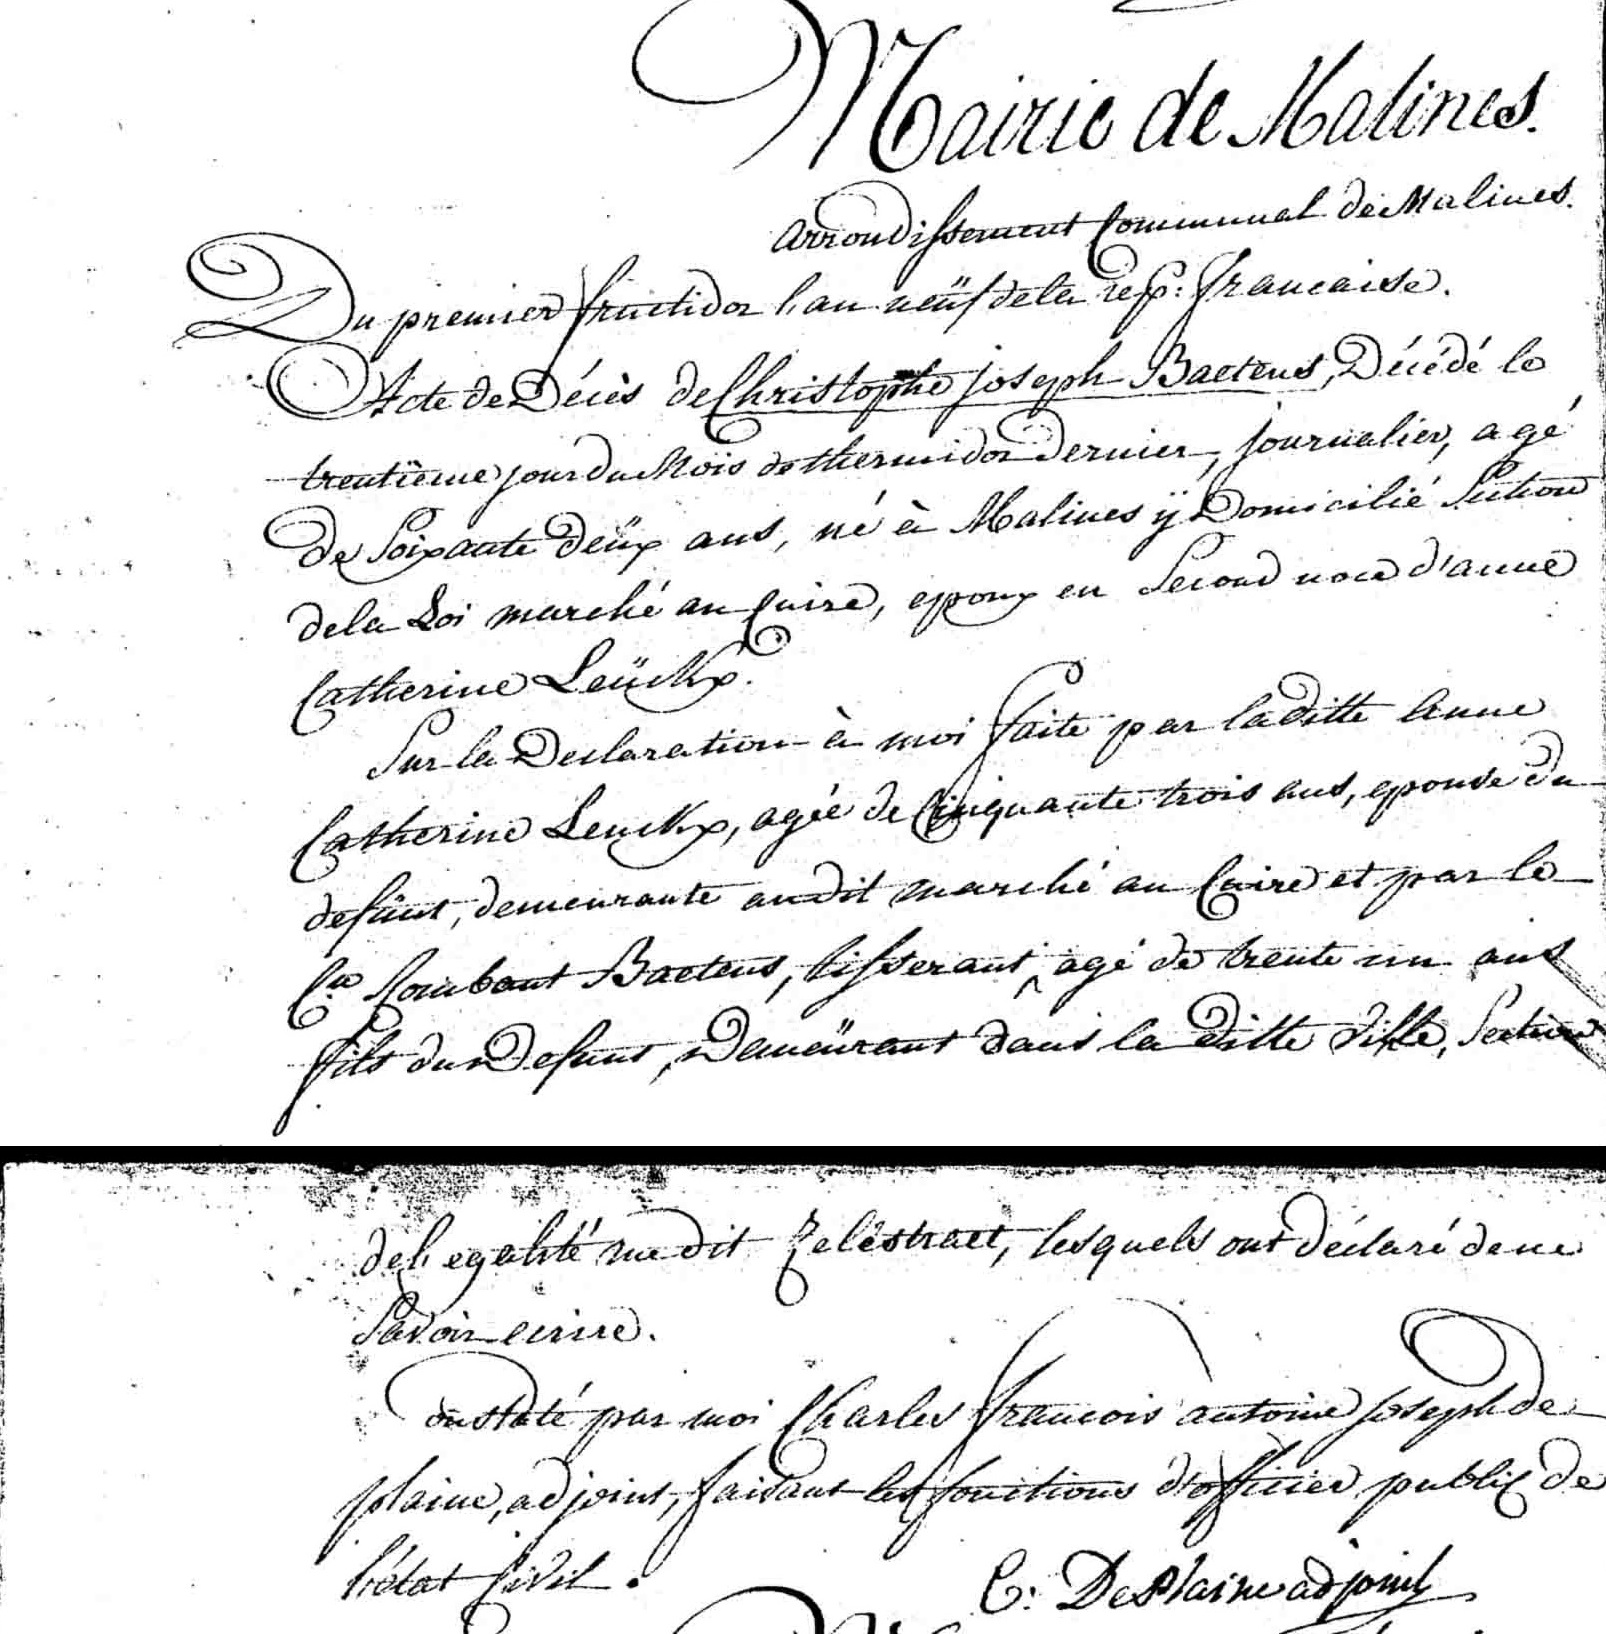 Mairie de Malines.
Arrondissement Communal de Malines.
Du premier fructidor l'an neüf de la rep: francaise.
Acte de Décès de Christophe joseph Baetens, Décédé le
trentieme jour du Mois de thermidor dernier, journalier, agé
de Soixante deüx ans, né à Malines ÿ Domicilié Section
de la Loi marché au Cuire, epoux en Second noce d'anne
Catherine Leückx.
Sur la Declaration à moi faite par laditte Anne
Catherine Leuckx, agée de Cinquante trois ans, epouse du
defunt, demeurante audit marché au Cuire et par le
Cen Rombaut Baetens, tisserant, agé de trente un ans
fils du Defunt, Demeürant dans la ditte Ville, Section
de l'egalité rue dit Zelestraet, lesquels ont déclaré de ne
Savoir ecrire.
Constaté par moi Charles francois antoine joseph de
plaine, adjoint, faisant les fonctions d'officier public de
l'état Civil.
C: De Plaine adjoint